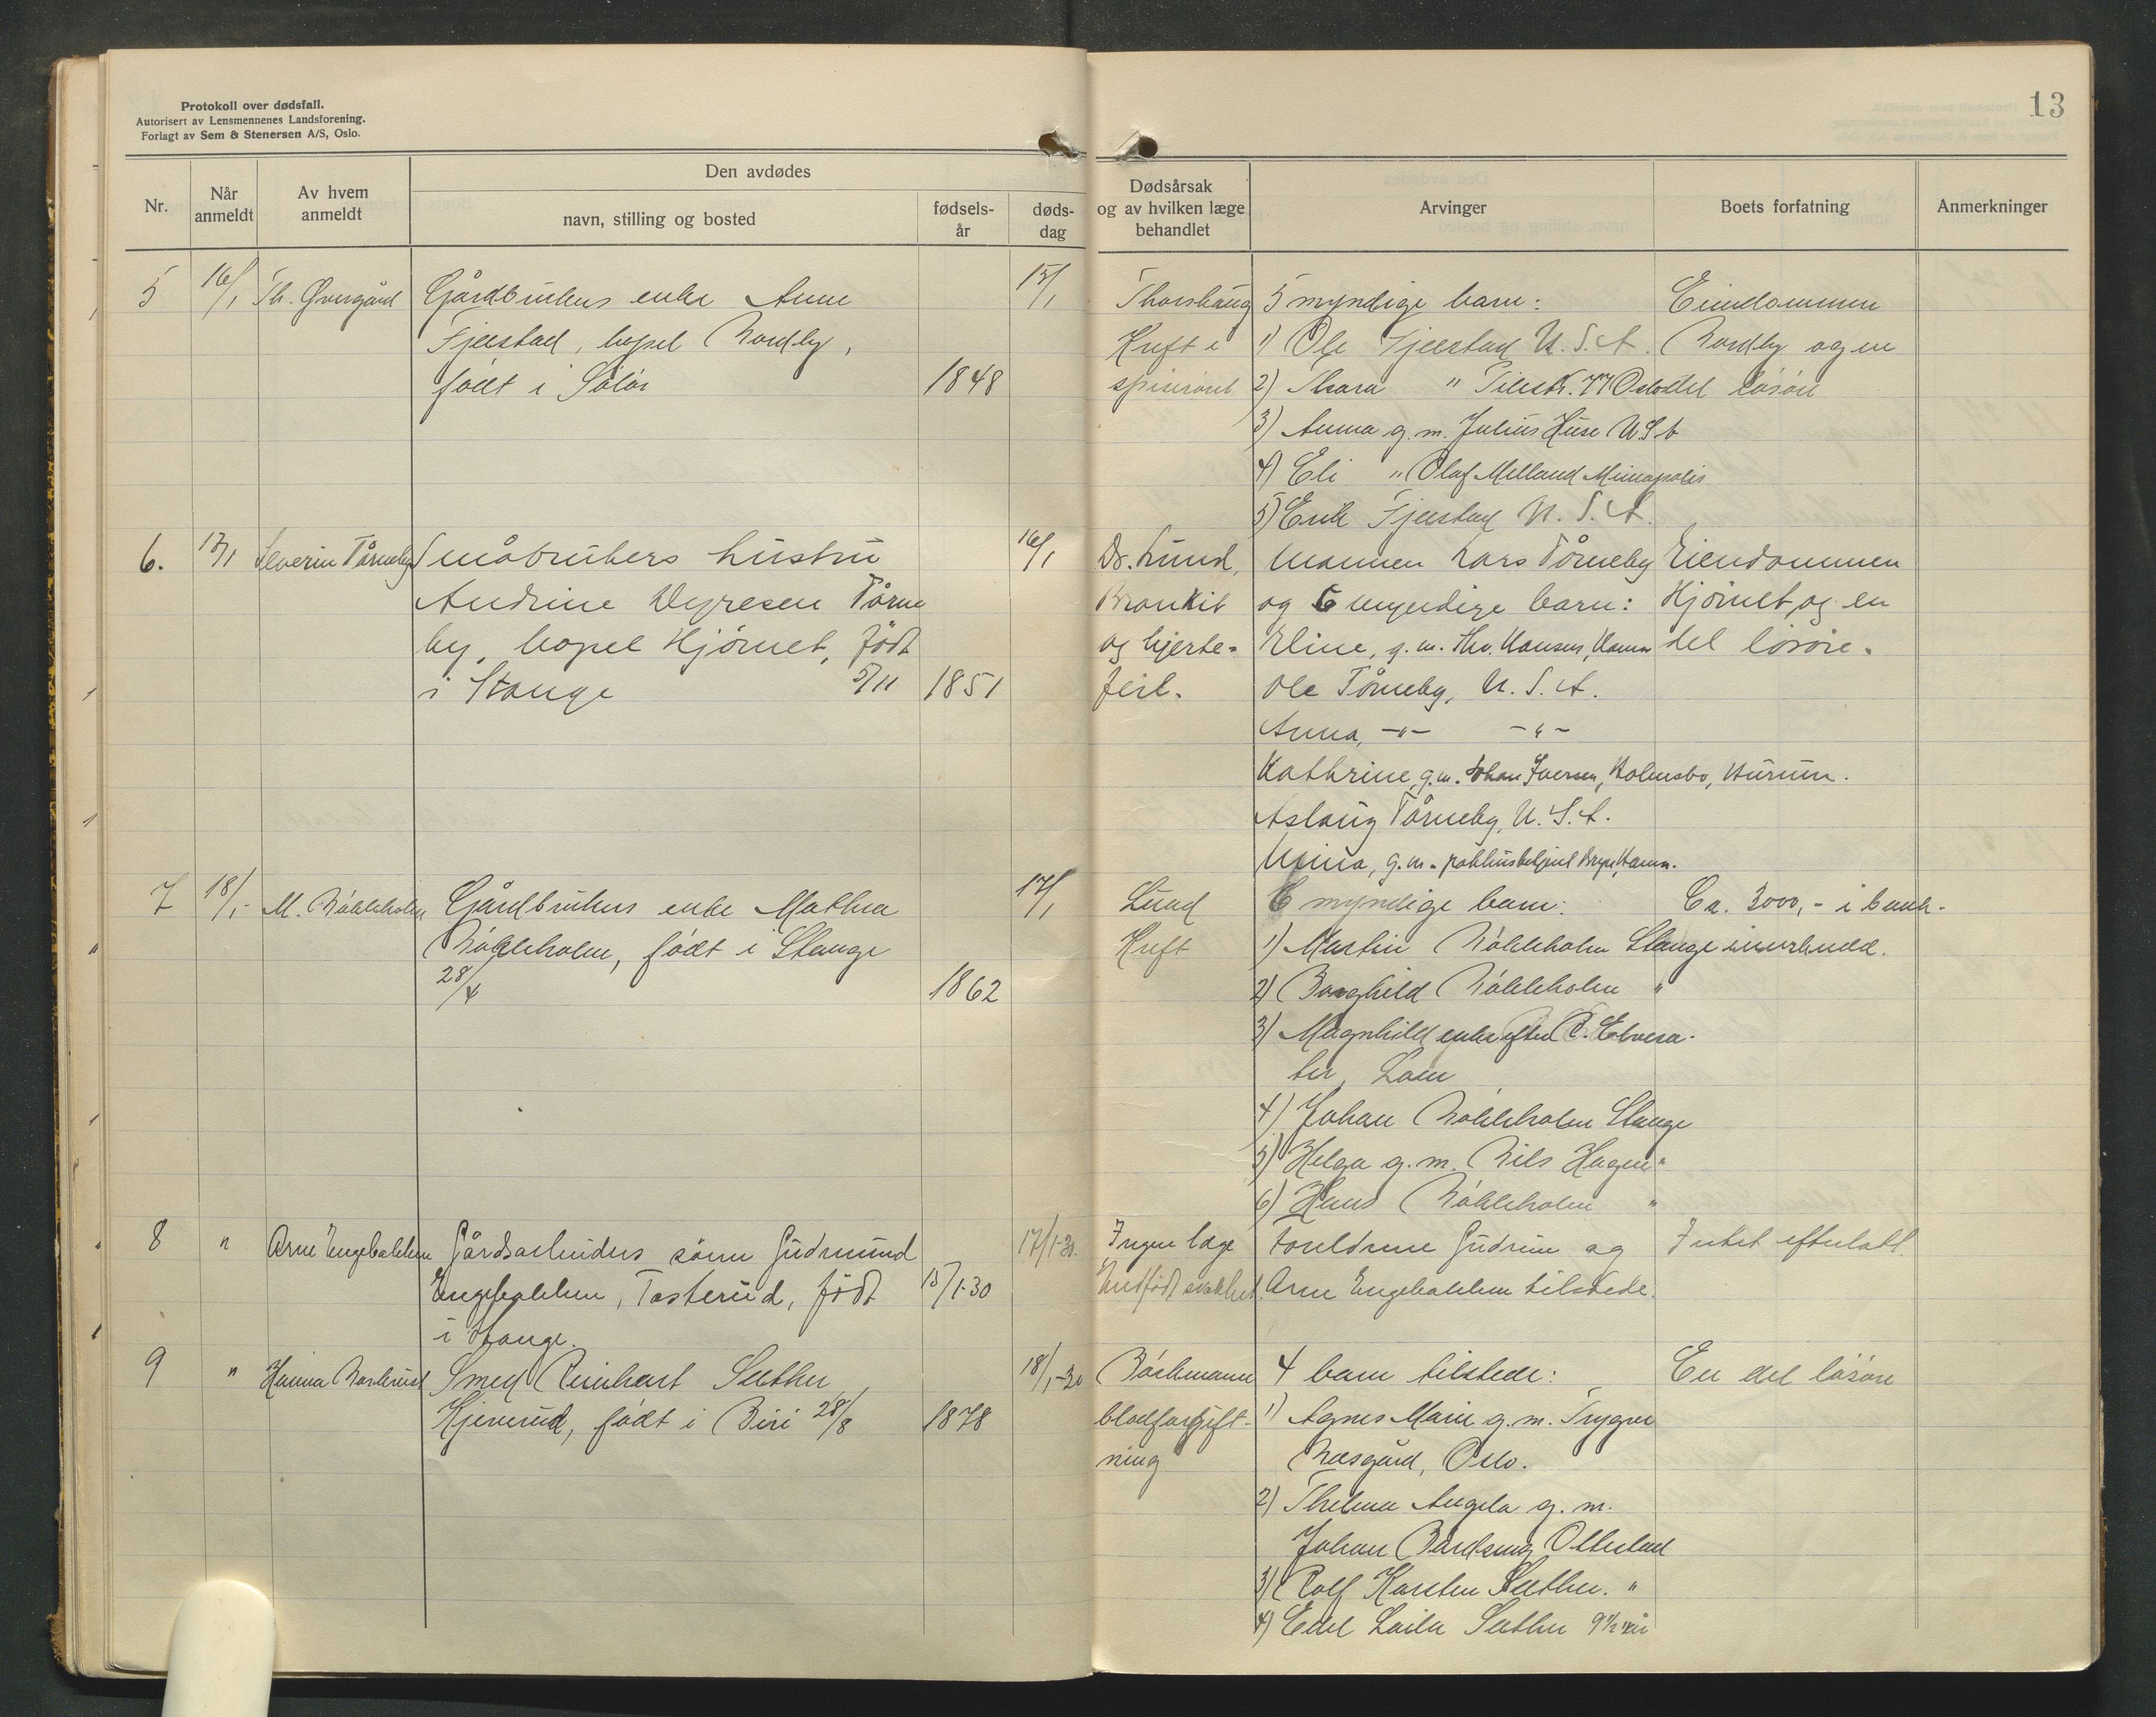 Protokoll over dødsfall.
Autorisert av Lensmennenes Landsforening.
Forlagt av Sem & Stenersen A/S, Oslo.
13
Nr.
Når anmeldt
Av hvem anmeldt
Den avdødes
navn, stilling og bosted
fødsels-år
døds-dag
Dødsårsak og av hvilken læge behandlet
Arvinger
Boets forfatning
Anmerkninger
5 16/1 Th. Øvergård Gårdbrukers enke Anne 15/1 Thorshaug 5 myndige barn: Eiendommen
Fjeestad, bopel Nordby, Kreft i 1) Ole Fjeestad U.S.A. Nordby og en
født i Solør 1848 spiserøret 2) Thora " Pilestr. 77 Oslo del løsøre
3) Anna g.m. Julius Huse USA
4) Eli " Olaf Melland Minapolis
5) Erik Fjeestad U.S.A.
6. 17/1 Severin Tårneby Småbrukers hustru 16/1 Dr. Lund, Mannen Lars Tårneby Eiendommen
Andrine Degresen Tårne Bronkit og 6 myndige barn: Hjørnet, og en
by, bopel Hjørnet, født og hjerte- Eline, g.m. Thv. Hansen, Hamar del løsøre.
i Stange 5/11 1851 feil. Ole Tårneby, U.S.A.
Anna, -"- -"-
Kathrine, g.m. Johan Iversen, Holmsbo, Hurum.
Aslaug Tårneby, U.S.A.
Mina, g.m. pakhusbetjent Hamar.
7 18/1- M. Nökleholm Gårdbrukers enke Mathea 17/1 Lund 6 myndige barn: Ca. 3000,- i bank-
Nökleholm, født i Stange Kreft 1) Martin Nökleholm Stange innskudd.
28/4 1862 2) Borghild Nökleholm "
3) Magnhild enke efter O. Elvesæ-
ter, Lom
4) Johan Nökleholm Stange
5) Helga g.m. Nils Hagen "
6) Hans Nökleholm "
8 " Arne Engebakken Gårdsarbeiders sønn Gudmund 17/1-30. Ingen læge Foreldrene Gudrun og Intet efterlatt.
Engebakken, Tasterud, født 15/1-30 Medfødt svakhet. Arne Engebakken tilstede.
i Stange.
9 " Hanna Smed Reinhart Sæther 18/1-30 Bóckmann 4 barn tilstede: En del løsøre
Kjeverud, født i Biri 28/8 1878 blodforgift- 1) Agnes Marie g.m. Trygve
ning Næsgård, Oslo.
2) Thelma Angela g.m.
Johan Bårdseng Ottestad
3) Rolf Karsten Sæther. "
4) Edel Laila Sæther 9 1/2 år